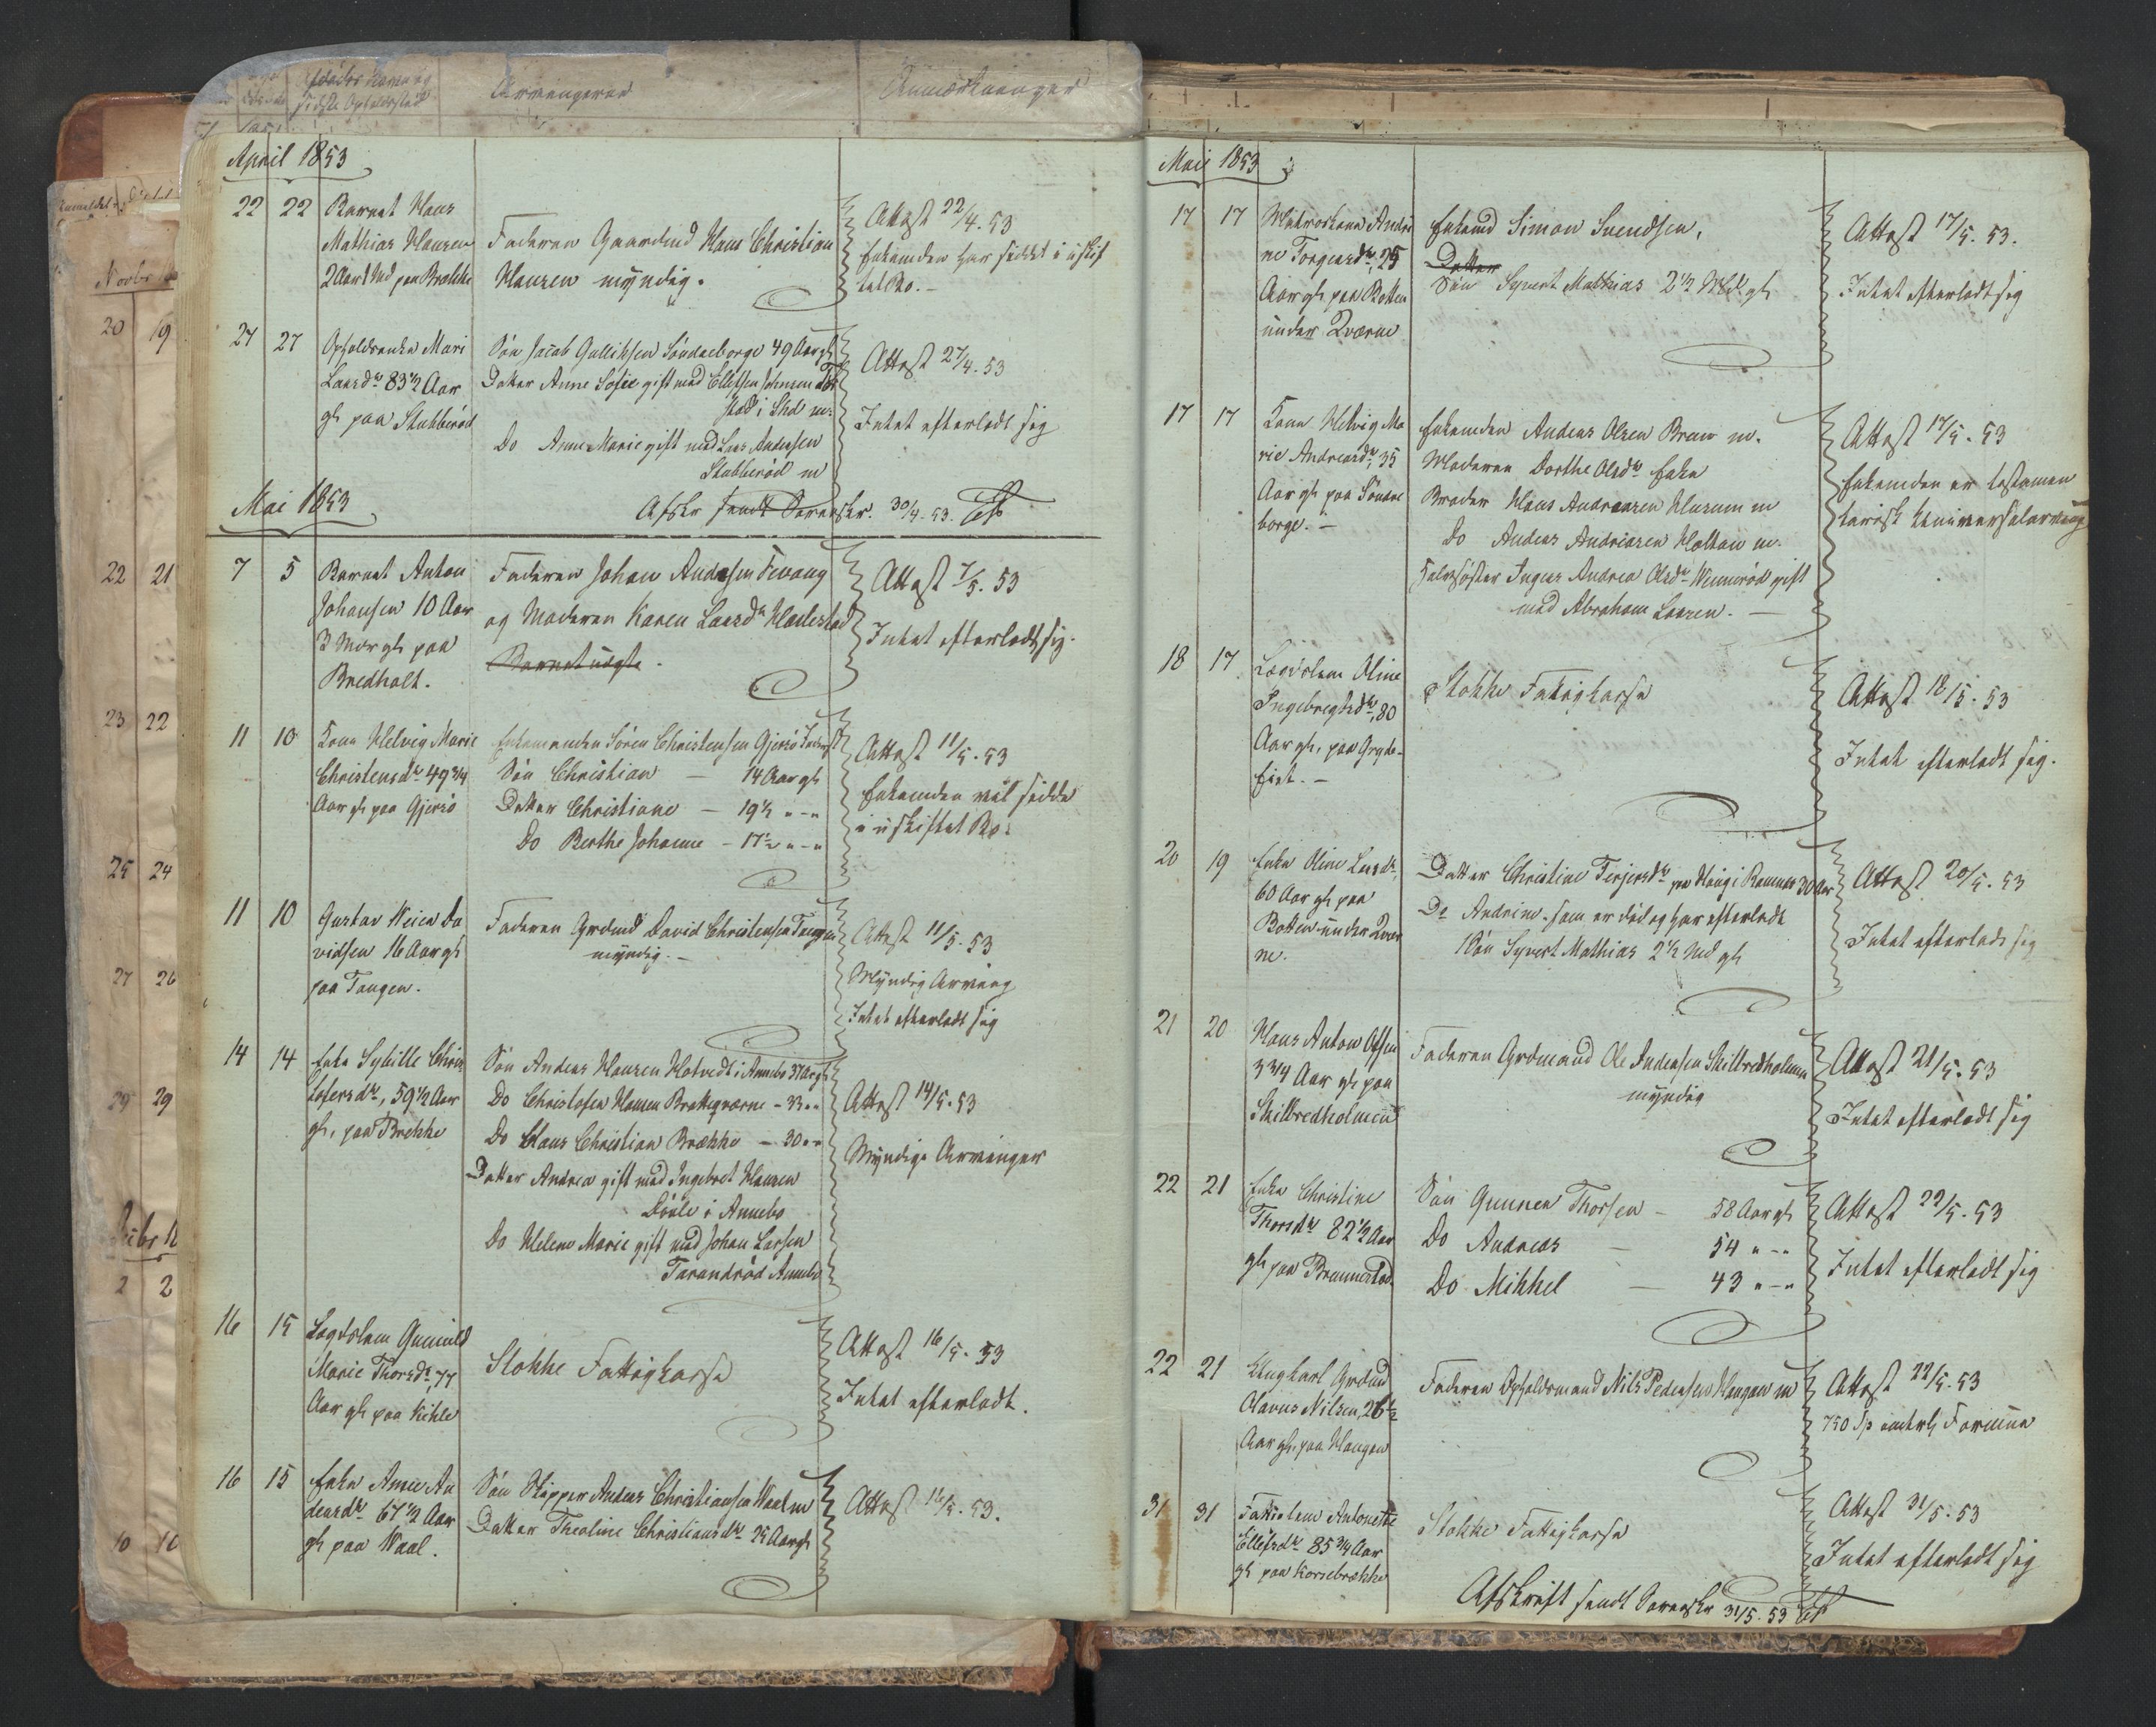 Afdødes Navn og
sidste Opholdssted
Arvingerne
Anmærkninger
April 1853
22 22 Barnet Hans
Mathias Hansen
2 Aar 1 Md paa Brække
Faderen Gaardmd Hans Christian
Hansen myndig.
Attest 22/4. 53
Enkemanden har siddet i uskif
tet Bo.
27 27 Opholdsenke Mari
Larsdr 83 1/2 Aar
gl paa Stubberød
Søn Jacob Gulliksen Søndreborge 49 Aar gl
Datter Anne Sofie gift med Ellefsen Johnsen
Do Anne Marie gift med Lars Andersen
Stubberød m
Attest 27/4. 53
Intet efterladt sig
Afskr sendt Sorenskr. 30/4. 53.
Mai 1853
7 5 Barnet Anton
Johansen 10 Aar
3 Mdr gl paa
Bredholt.
Faderen Johan Andersen Fevang
og Moderen Karen Larsdr Harlestad
Barnet uægte.
Attest 7/5. 53
Intet efterladt sig.
11 10 Kone Helvig Marie
Christensdr 49 3/4
Aar gl paa Gjersø
Enkemanden Søren Christensen Gjersø
Søn Christian – 14 Aar gl
Datter Christiane – 19 1/2 " – "
Do Berthe Johanne – 17 1/2 " – "
Attest 11/5. 53
Enkemanden vil sidde
i uskiftet Bo.
11 10 Gustav Weien Da
vidsen 16 Aar gl
paa Tangen.
Faderen Grdmd David Christensen Tangen
myndig. –
Attest 11/5. 53
Myndig Arving
Intet efterladt sig
14 14 Enke Sybille Chris
tofersdr, 59 1/2 Aar
gl, paa Brekke
Søn Anders Hansen Hotvedt i Annebo 37 Aar gl
Do Christofer Hansen Brekkeqværne – 33 " "
Do Claus Christian Brække – 30 " "
Datter Andrea gift med Ingebret Hansen
Døvle i Annebo
Do Helene Marie gift med Johan Larsen
Tarandrød Annebo
Attest 14/5. 53
Myndige Arvinger
16 15 Lægdslem Gunild
Marie Thorsdr, 77
Aar gl paa Kihle
Stokke Fattigkasse
Attest 16/5. 53
Intet efterladt.
16 15 Enke Anne An
dersdr 67 1/2 Aar
gl paa Waal.
Søn Skipper Anders Christiansen Waal m
Datter Theoline Christiansdr 25 Aar gl
Attest 16/5. 53.
Mai 1853
17 17 Matroskone Andri
ne Torgersdr, 25
Aar gl paa Botten
under Qværne
Enkemd Simon Svendsen.
Datter
Søn Syvert Mathias 2 1/2 Md. gl
Attest 17/5. 53.
Intet efterladt sig
17 17 Kone Helvig Ma
rie Andreasdr, 35
Aar gl paa Søndre
borge. –
Enkemanden Anders Olsen Braw m.
Moderen Dorthe Olsdr Enke
Broder Hans Andreasen Husum m
Do Anders Andreasen Holtan m.
Halvsøster Inger Andrea Olsdr Wennerød gift
med Abraham Larsen. –
Attest 17/5. 53
Enkemanden er testamen
tarisk Universalarving
18 17 Lægdslem Oline
Ingebregtsdr, 80
Aar gl, paa Gryde-
fiet. –
Stokke Fattigkasse
Attest 18/5. 53
Intet efterladt sig.
20 19 Enke Oline Larsdr,
60 Aar gl paa
Botten under Qvær
ne.
Datter Christine Terjersdr paa Haug i Ramnes 30 Aar
Do Andrine. som er død og har efterladt
1 Søn Syvert Mathias 2 1/2 Md gl
Attest 20/5. 53
Intet efterladt sig
21 20 Hans Anton Olsen
3 3/4 Aar gl paa
Skilbredholmen
Faderen Grdmand Ole Andersen Skilbredholmen
myndig
Attest 21/5. 53
Intet efterladt sig
22 21 Enke Christine
Thorsdr 82 1/2 Aar
gl paa Brunnestad.
Søn Gunner Thorsen – 58 Aar gl
Do Andreas – 54 " – "
Do Mikkel – 43 " – "
Attest 22/5. 53
Intet efterladt sig
22 21 Ungkarl Grdmd
Olavus Nilsen, 26 1/2
Aar gl, paa Haugen
Faderen Opholdsmand Nils Pedersen Haugen m
Attest 22/5. 53
750 Sp Formue
31 31 Fattiglem Antonette
Ellefsdr 85 3/4 Aar
gl paa Korsebrække
Stokke Fattigkasse
Attest 31/5. 53
Intet efterladt sig
Afskrift sendt Sorenskr 31/5. 53
Novbr
20 19
22 21
23 22
25 24
27 26
29 29
2 2
10 10